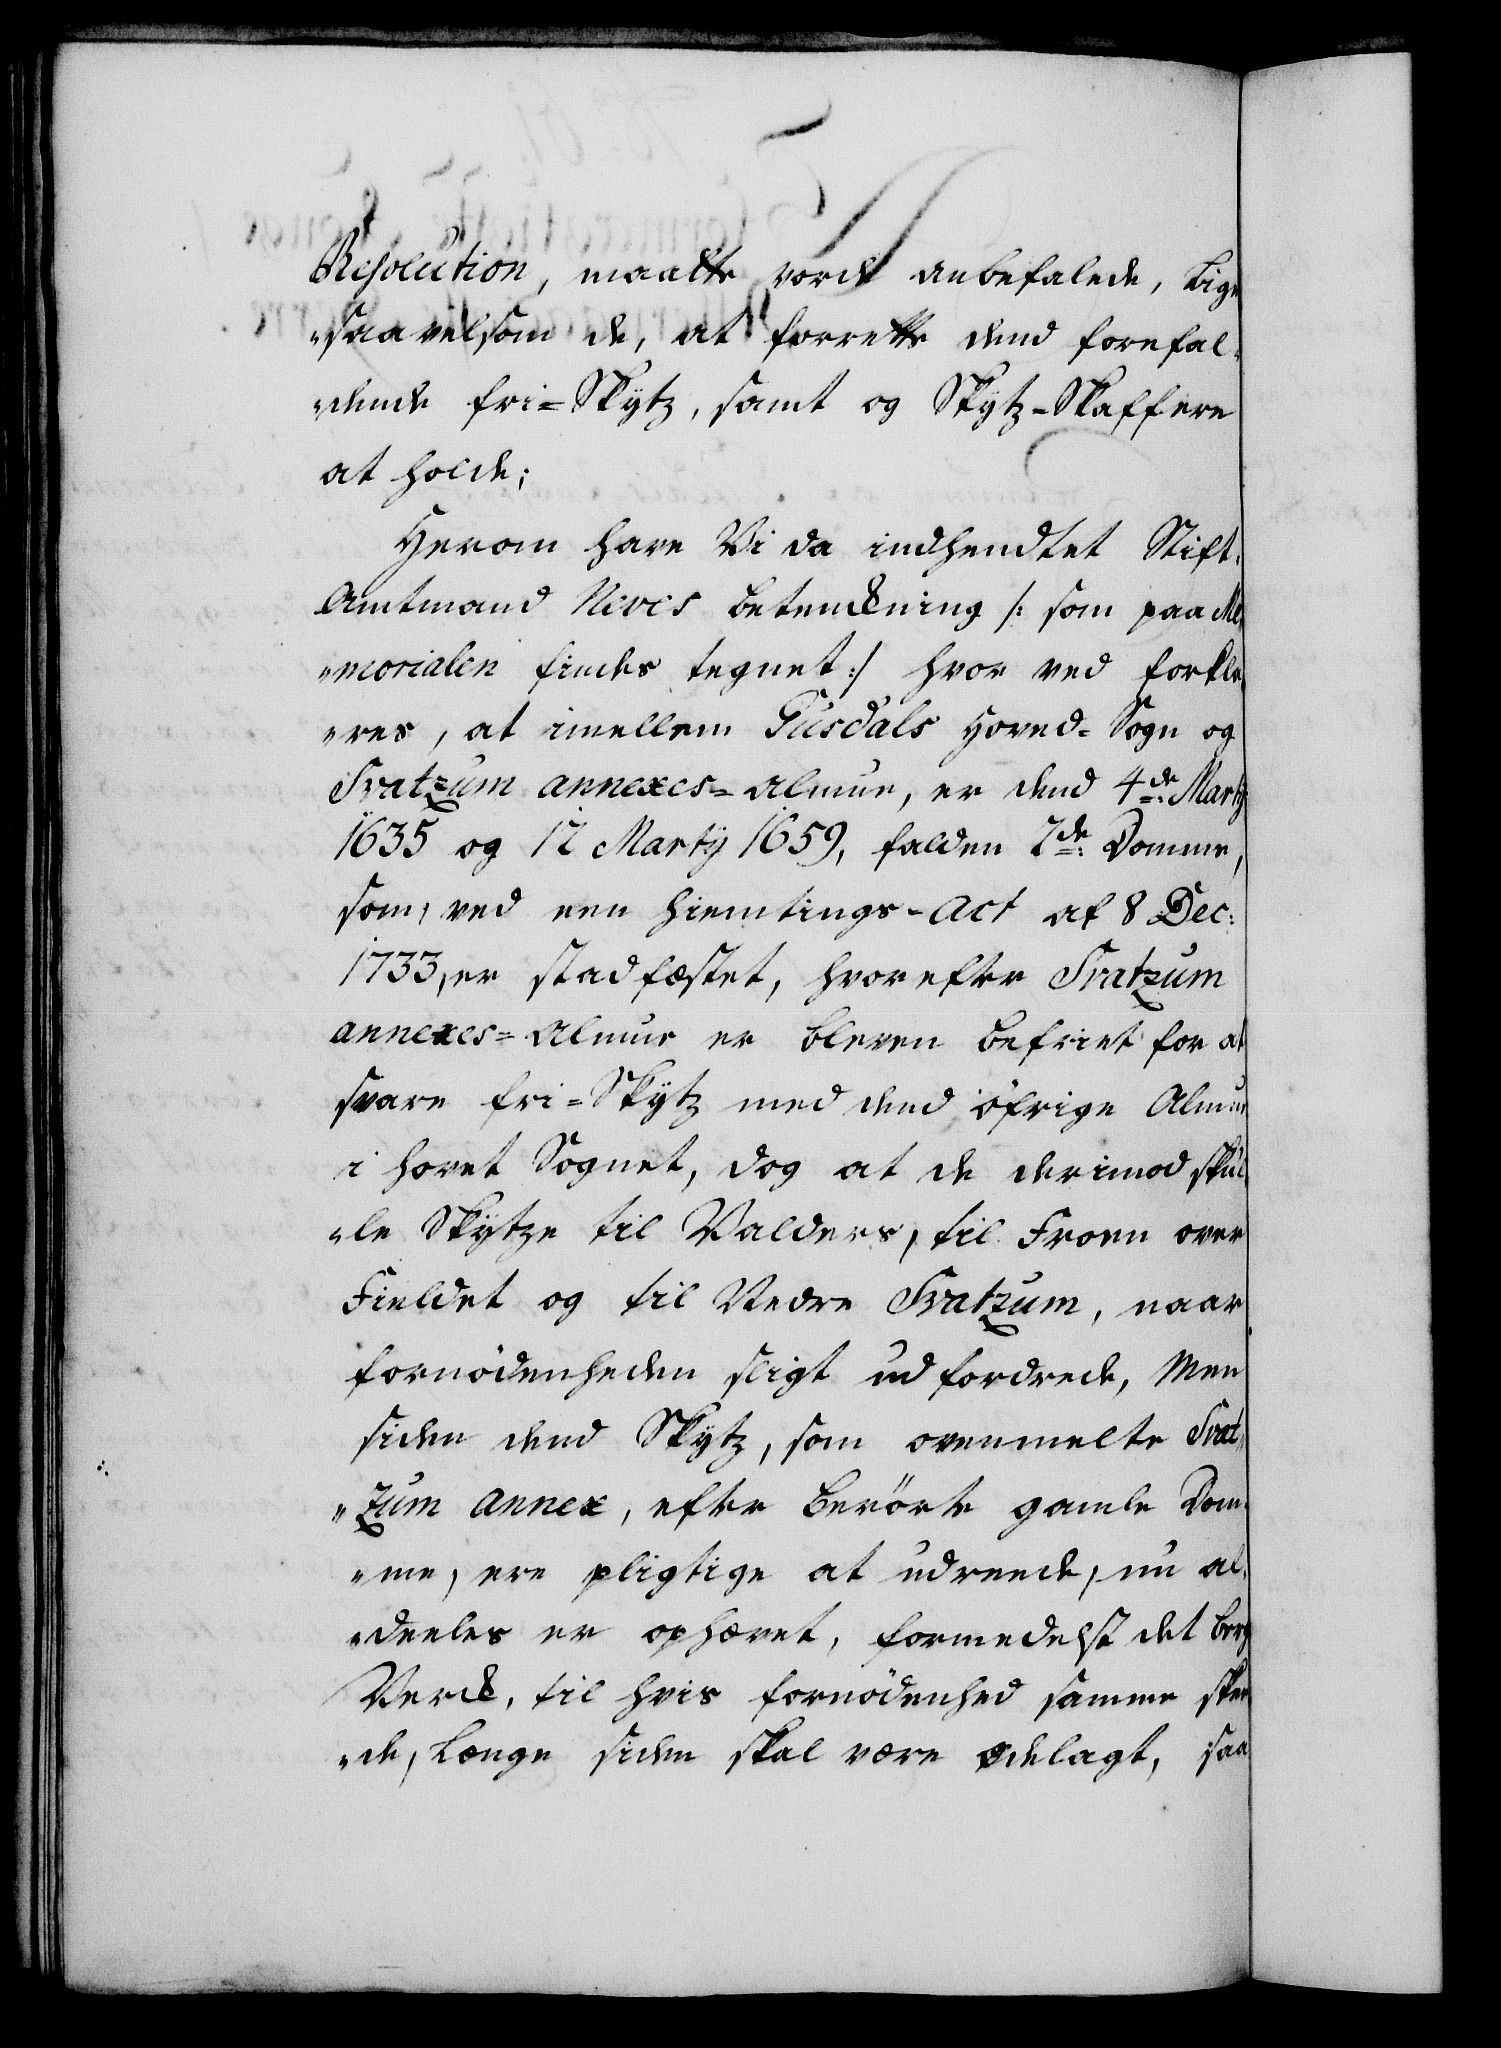 Resolution, maatte vorde anbefalede, lige
"saavelsom de, at forrette dend forefal-
"dende fri=Skytz, samt og Skytz-Skaffere
at holde;
Herom have Vi da indhendtet Stift-
Amtmand Neves betenckning /: som paa Me-
"morialen findes tegnet :/ hvor ved forkla-
"res, at imellem Gusdals Hoved=Sogn og
Svatzum annexes=Almue, er dend 4de Martij
1635 og 12 Martij 1659, falden 2de Domme,
som, ved een hiemtings-Act af 8 Dec:
1733, er stadfæstet, hvorefter Svatzum
annexes=Almue er bleven befriet for at
svare fri=Skytz med dend öfrige Almue
i hovet Sognet, dog at de derimod skul-
"le Skytze til Valders, til Froen over
Fieldet og til Vedre Svatzum, naar
fornödenheden sligt udfordrede, Men
siden dend Skytz, som ovenmelte Svat-
"zum Annex, efter berörte gamle Dom-
"me, ere pligtige at udreede, nu al-
"deeles er ophævet, formedelst det berg
Verck, til hvis fornödenhed samme skee-
"de, længe siden skal være ödelagt, saa